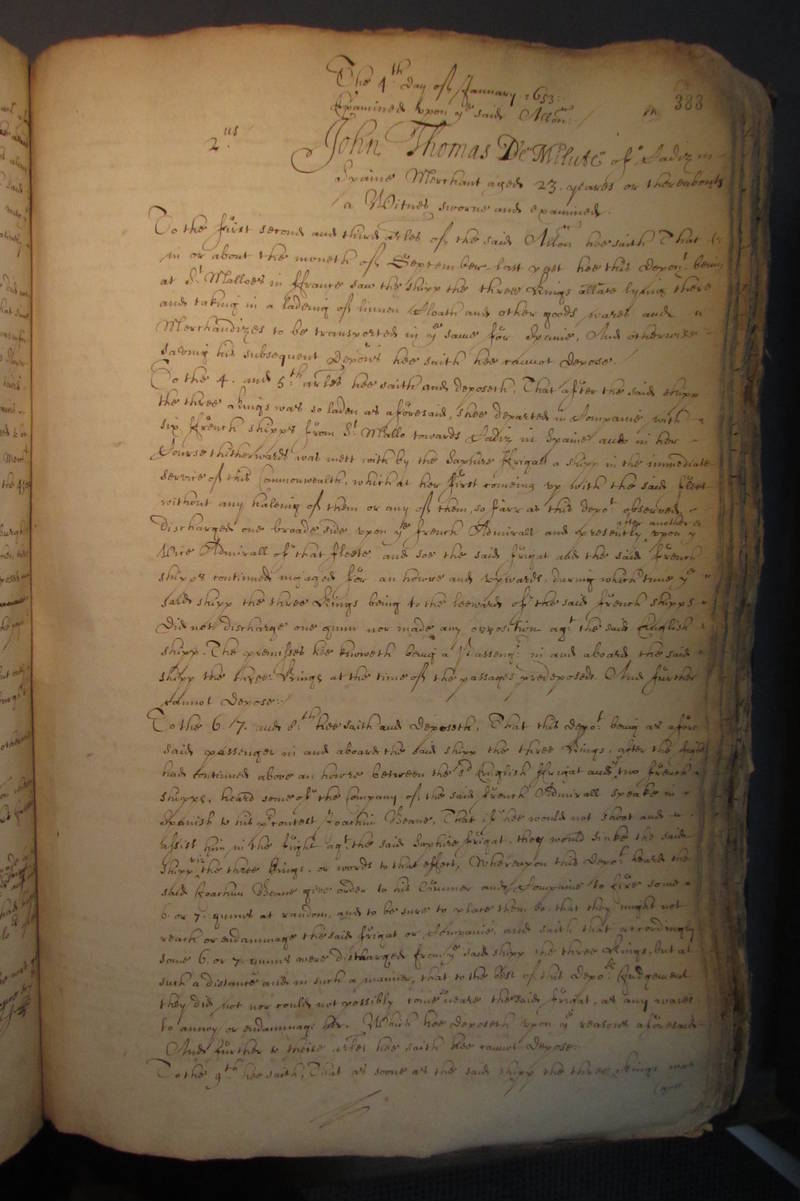 The 4th day of January 1653:
Examined upon ye said Allon:
383
2.us
John Thomas De Milute of Cadiz in
Spaine Merchant aged 23. yeares or thereabouts
a Witnes sworne and examined.
To the first second and third arles of the said Allon hee saith That
in or about the moneth of September last past hee this depont being
at St Malloes in ffrance saw the shipp the three Kings arlate lying there
and taking in a ladeing of linnen Cloath and other goods wares and
Merchandizes to be transported in ye same for Spaine, And otherwise
saving his subsequent deposicons hee saith hee cannot depose./
To the 4. and 5.th arles hee saith and deposeth, That after the said shipp
the three Kings was so laden as aforesaid, shee departed in Companie with
six ffrench shipps from St Mallo towards Cadiz in Spaine and in her
Course thitherwards was mett with by the Saphire ffrigatt a shipp in the immediate
service of this Commonwealth, which at her first comeing up with the said fleet
without any haleing of them or any of them, so farr as this depot observed,
discharged one broade side upon ye french Admirall and presently after another upon ye
Vice Admirall of that fleete, and soe the said frigat and the said ffrench
shipps continued ingaged for an howre and upwards. during which time ye
said shipp the three Kings being to the leeward of the said french shipps
did not discharge one gunn nor made any opposition agt the said English
shipp. The premisses hee knoweth being a Passengr in and aboard the said
shipp the three Kings at the time of the passages predeposed. And further
cannot depose:/
To the 6. 7. and 8.th hee saith and deposeth, That this depot being as afore
said passenger in and aboard the said shipp the three Kings, after the fight
had continued above an howre betweene the sd English ffrigat and two french
shipps, heard some of the Company of the said french Admirall speake in
Spanish to his producent Joachim Beane, That if hee would not shoot and
assist him in the fight agt the said Saphire frigat, they would sinke the said
shipp vizt the three Kings, or words to that effect, Whereupon this depot heard the
said Joachim Beane give order to his Gunner and Companie to fire some
6 or 7. gunns at random, and to be sure to place them so, that they might not
reach or endammage the said frigat or Companie, and saith that accordingly
some 6. or 7. gunns were discharged from ye said shipp the three Kings, but at
such a distance and in such a manner, that to the best of this depots Judgement
they did not nor could not possibly come neare the said frigat, as any wayes
to annoy or endammage her. Which hee deposeth upon ye reasons aforesaid
And further to theise arles hee saith hee cannot depose.
To the 9th hee saith, That as soone as the said shipp the three Kings was